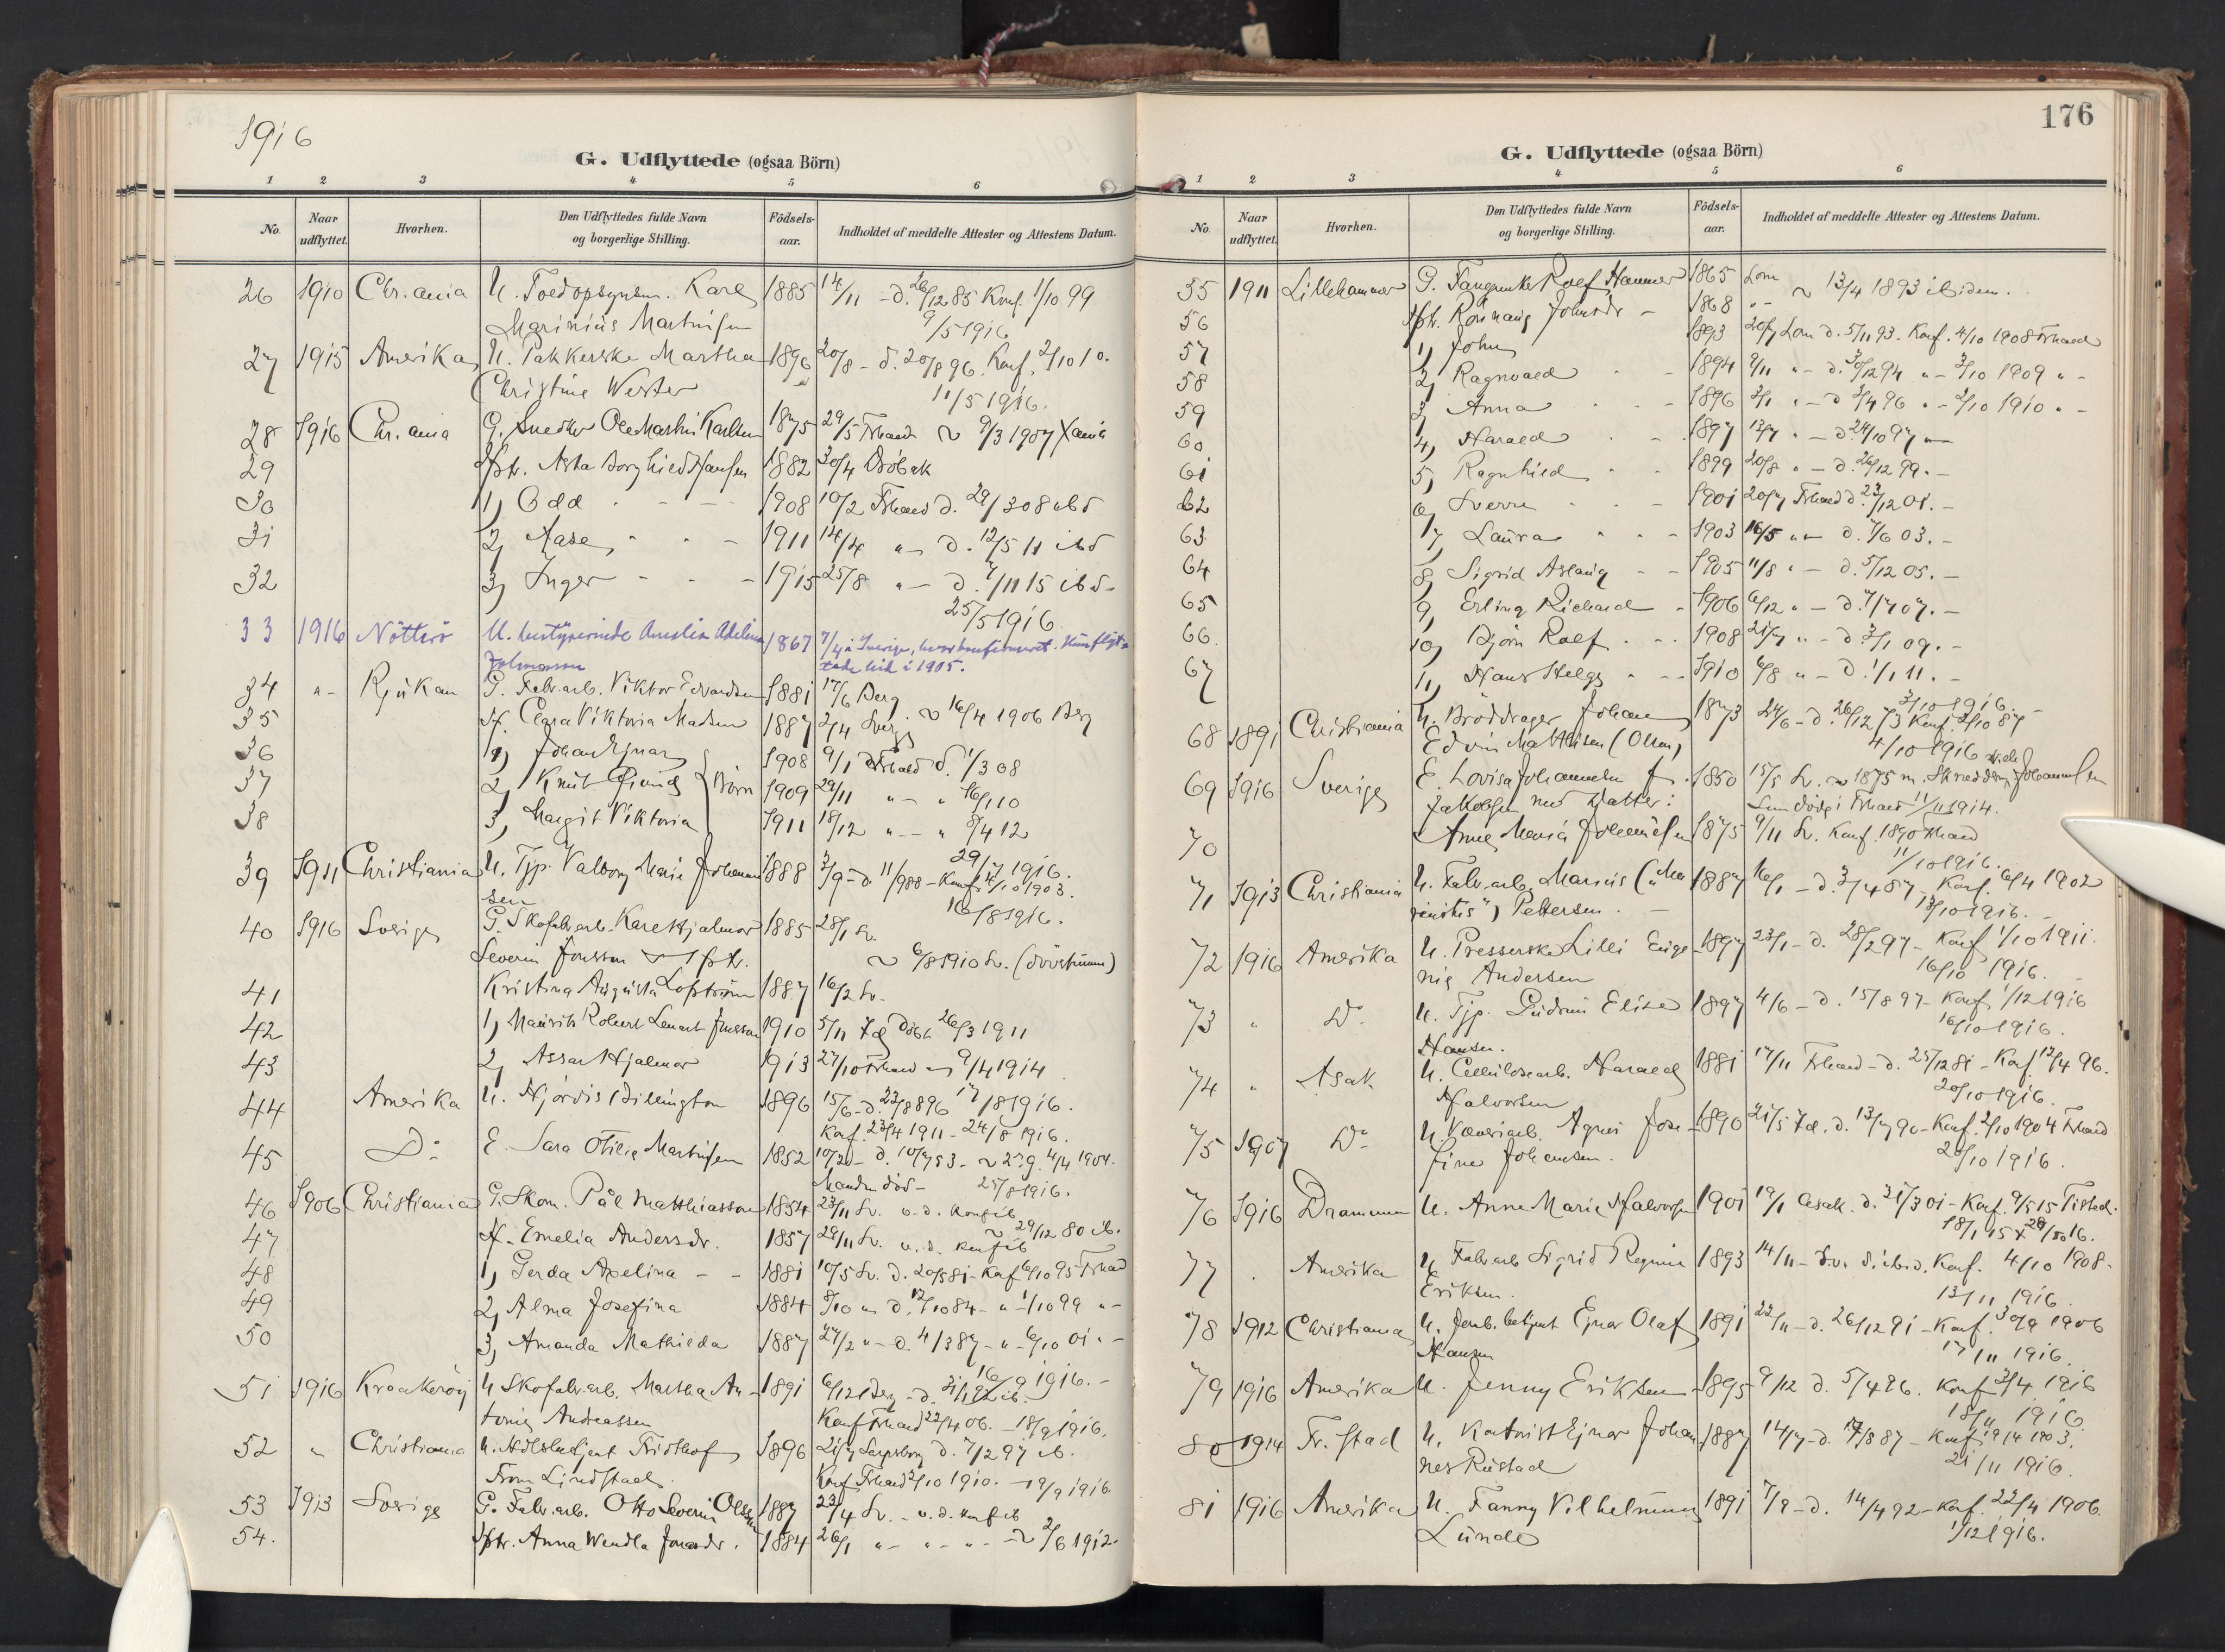 1916
G. Udflyttede (ogsaa Börn)
1 2 3 4 5 6
No. Naar udflyttet. Hvorhen. Den Udflyttedes fulde Navn og borgerlige Stilling. Födsels-aar. Indholdet af meddelte Attester og Attestens Datum.
26 1910 Chr.ania U. Toldopsynsm. Karl 1885 14/11 - d. 26/12 85 Konf. 1/10 99
Marinius Martinsen 9/5 1916
27 1915 Amerika U. Pakkerske Martha 1896 20/8 - d. 20/8 96. Konf. 2/10 10.
Christine Wester 11/5 1916.
28 1916 Chr.ania G. Snedker Ole Martin Karlsen 1875 29/5 Frhald ~ 9/3 1907 Xania
29 Hstr. Asta Borghild Hansen 1882 30/4 Dröbak
30 1) Odd - - - 1908 10/2 Frhald d. 29/3 08 ibd
31 2) Aase - - - 1911 14/4 " - d. 12/5 11 ibd
32 3) Inger - - - 1915 25/8 " - d. 7/11 15 ibd-
25/5 1916
33 1916 Nötterö U. hustyerinde Amelia Adelina 1867 7/4 i Sverige, hvor konfirmeret. Kun flyt-
Johnsson tede hid i 1905.
34 " - Rjukan G. Fabr.arb. Viktor Edvardsen 1881 17/6 Berg
35 H. Clara Viktoria Madsen 1887 2/4 Sverge ~ 16/4 1906 Berg
36 1) Johan Ejnar 1908 9/1 Frhald d. 1/3 08
37 2) Knut Öivind Börn 1909 29/11 " - " 16/1 10
38 3) Margit Viktoria 1911 18/12 " - " 8/4 12
29/7 1916.
39 1911 Christiania U. Tjp. Valborg Marie Johannes 1888 3/9 - d. 11/9 88 - Konf. 4/10 1903.
sen 16/8 1916.
40 1916 Sverige G. Skofabr.arb. Karl Hjalmar 1885 28/1 Sv.
Severin Jonsson Hstr. ~ 6/8 1910 Sv. (dövstumm)
41 Kristina Augusta Lofström 1887 16/2 Sv.
42 1) Maurits Robert Lenart Jonsson 1910 5/11 Id Döbt 26/3 1911
43 2) Assar Hjalmar 1913 27/10 Frhald " 9/4 1914
44 Amerika U. Hjördis Billington 1896 15/6 - d. 23/8 896 17/8 1916.
Konf. 23/4 1911 - 24/8 1916.
45 Do E. Sara Otilie Martinsen 1852 10/20 - d. 10/7 53. ~ 2. g. 4/4 1904.
Manden död - 25/8 1916.
46 1906 Christiania G. Skom. Pål Matthiasson 1854 23/11 Sv. o. d. konf ib
47 H. Emelia Andersdr. 1857 29/11 Sv. o. d. konf ib ~ 29/12 80 ib.
48 1) Gerda Axelina - - 1881 10/5 Sv. d. 20/5 81 - Konf 6/10 95 Frhald
49 2) Alma Josefina 1884 8/10 " d. 12/10 84 - " - 1/10 99 " -
50 3) Amanda Mathilda 1887 27/2 " - d. 4/3 87 - " - 6/10 01 " -
16/9 1916. -
51 1916 Kraakeröy U Skofabr.arb. Martha An- 1891 6/12 Berg - d. 31/1 92 ib.
tonie Andreassen Konf Frhald 22/4 06. - 18/9 1916.
52 " Christiania U. Fridthof 1896 21/7 Sarpsborg d. 7/2 97 ib.
From Lindstad. Konf Frhald 2/10 1910. - 19/9 1916
53 1913 Sverige G. Fabr.arb. Otto Severin Olsson 1887 23/4 Sv. - o. d. konf ib
54. Hstr. Anna Wendla Jonasdr. 1884 26/1 " - " - " - ~ 2/6 1912.
176
G. Udflyttede (ogsaa Börn)
1 2 3 4 5 6
No. Naar udflyttet. Hvorhen. Den Udflyttedes fulde Navn og borgerlige Stilling. Födsels-aar. Indholdet af meddelte Attester og Attestens Datum.
55 1911 Lillehammer G. Rolf Hammer 1865 Lom ~ 13/4 1893 ibidem.
56 Hstr. Rönnaug Johnsdr - 1868 " -
57 1) John 1893 20/7 Lom d. 5/11 93. Konf. 4/10 1908 Frhald
58 2) Ragnvald - - 1894 9/11 " - d. 30/12 94 " - 3/10 1909 " -
59 3) Anna - - 1896 2/1 " - d 3/4 96 " - 2/10 1910 " -
60 4) Harald - - 1897 13/7 " - d. 24/10 97 " -
61 5) Ragnhild - - 1899 20/8 " - d. 26/12 99. -
62 6) Sverre - - 1901 20/7 Frhald d. 23/12 01. -
63 7) Laura - - 1903 16/5 " - d. 7/6 03. -
64 8) Sigrid Aslaug - - 1905 11/8 " - d. 5/12 05. -
65 9) Erling Richard - 1906 6/12 " - d. 7/7 07. -
66 10) Björn Rolf - - 1908 21/7 " - d. 3/1 09. -
67 11) Hans Helge - - 1910 6/8 " - d. 1/1 11. -
3/10 1916. -
68 1891 Christiania U. Bröddrager Johan 1873 24/6 - d. 26/12 73 Konf. 2/10 87
Edvin Mathisen (Olsen) 4/10 1916
69 1916 Sverige E. Lovisa Johannesen f. 1850 15/5 Sv. ~ 1875 m. Skrædder Johannesen
Jakobsen med Datter: som döde i Frhald 11/11 1914.
70 Anne Maria Johannesen 1875 9/11 Sv. Konf. 1890 Frhald
11/10 1916.
71 1913 Christiania U. Fabr.arb. Marius ("Ma 1887 16/1 - d. 3/4 87 - Konf. 6/4 1902
rinius") Pettersen. - 13/10 1916. -
72 1916 Amerika U. Presserske Lilli Euge- 1897 23/1 - d. 28/2 97 - Konf 1/10 1911.
nie Andersen 16/10 1916. -
73 " Do U. Tjp. Gudrun Elise 1897 4/6 - d. 15/8 97 - Konf 1/12 1916
Hansen. 16/10 1916.
74 " Asak U. Cellulosearb. Harald 1881 17/11 Frhald - d. 25/12 81 - Konf 12/4 96.
Halvorsen 20/10 1916.
75 1907 Do U. Væveriarb. Agnes Jose- 1890 21/5 Id. d. 13/7 90 - Konf. 2/10 1904 Frhald
fine Johansen. 20/10 1916.
76 1916 Drammen U. Anne Marie Halvorsen 1901 19/1 Asak. d. 31/3 01 - Konf. 9/5 15 Tistedl.
77 . Amerika U Fabr.arb Sigrid Regine 1893 14/11 - d. ibid. Konf. 4/10 1908.
Eriksen. 13/11 1916.
78 1912 Christiania U. Jernb.betjent Ejnar Olaf 1891 22/11 - d. 26/12 91 - Konf. 30/9 1906
Hansen 17/11 1916.
79 1916 Amerika U. Jenny Eriksen 1895 9/12 d. 5/4 96. Konf 2/4 1916
18/11 1916.
80 1914 Fr.stad U. Kontorist Ejnar Johan 1887 14/7 - d. 14/8 87 - Konf. 19/4 1903.
nes Rustad 21/11 1916.
81 1916 Amerika U. Fanny Vilhelmine 1891 7/8 - d. 14/4 92 - Konf. 22/4 1906
Lunde 1/12 1916.